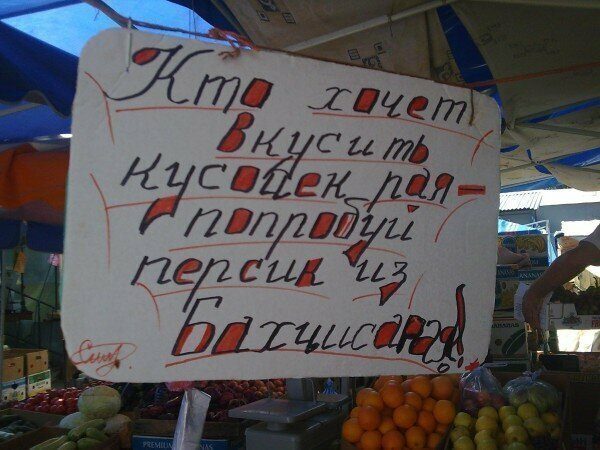 Кто хочет
вкусить
кусочек рая —
попробуй
персик из
Бахчисарая!
PREMIUM BANANAS